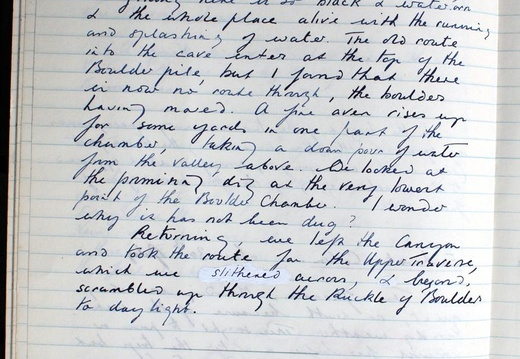 here is so black & waterworn
& the whole place alive with the running
and splashing of water. The old route
into the cave enters at the top of the
Boulder pile, but I found that there
is now no route through, the boulders
having moved. A fine aven rises up
for some yards in one part of the
chamber, taking a down pour of water
from the valley above. We looked at
the promising dig at the very lowest
point of the Boulder Chamber. I wonder
why is has not been dug?
Returning, we left the Canyon
and took the route for the Upper Traverse,
which we slithered across, & beyond,
scrambled up through the Ruckle of Boulders
to daylight.